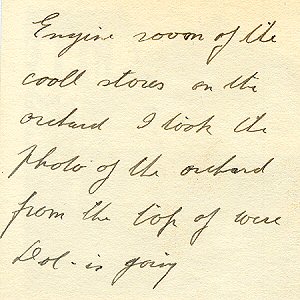 Engine room of the
cooll stores on the
orchard I took the
photo of the orchard
from the top of were
Dol - is going